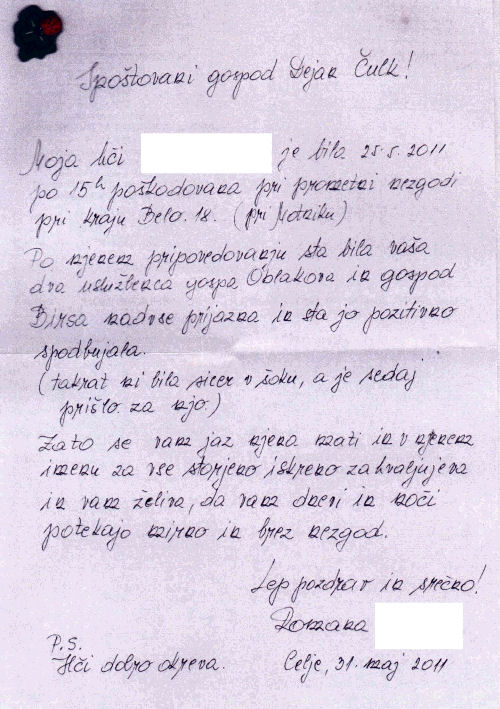 Spoštovani gospod Dejan Čulk!
Moja hči je bila 25.5.2011
po 15h poškodovana pri prometni nezgodi
pri kraju Belo 18. (pri Motniku)
Po njenem pripovedovanju sta bila vaša
dva uslužbenca gospa Oblakova in gospod
Birsa nadvse prijazna in sta jo pozitivno
spodbujala.
(takrat ni bila sicer v šoku, a je sedaj
prišlo za njo.)
Zato se vam jaz njena mati in v njenem
imenu za vse storjeno iskreno zahvaljujeva
in vam želiva, da vam dnevi in noči
potekajo mirno in brez nezgod.
Lep pozdrav in srečno!
Romana
P.S.
Hči dobro okreva.
Celje, 31. maj 2011